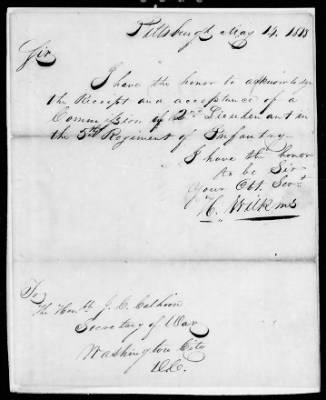 Pittsburgh May 14. 1818
Sir
I have the honor to acknowledge
the Receipt and acceptance of a
Commission of 2nd Lieutenant in
the 5th Regiment of Infantry.
I have the honor
to be Sir
Your Obt. Servt
H. Wilkins
To
The Honble. J. C. Calhoun
Secretary of War
Washington City
D.C.